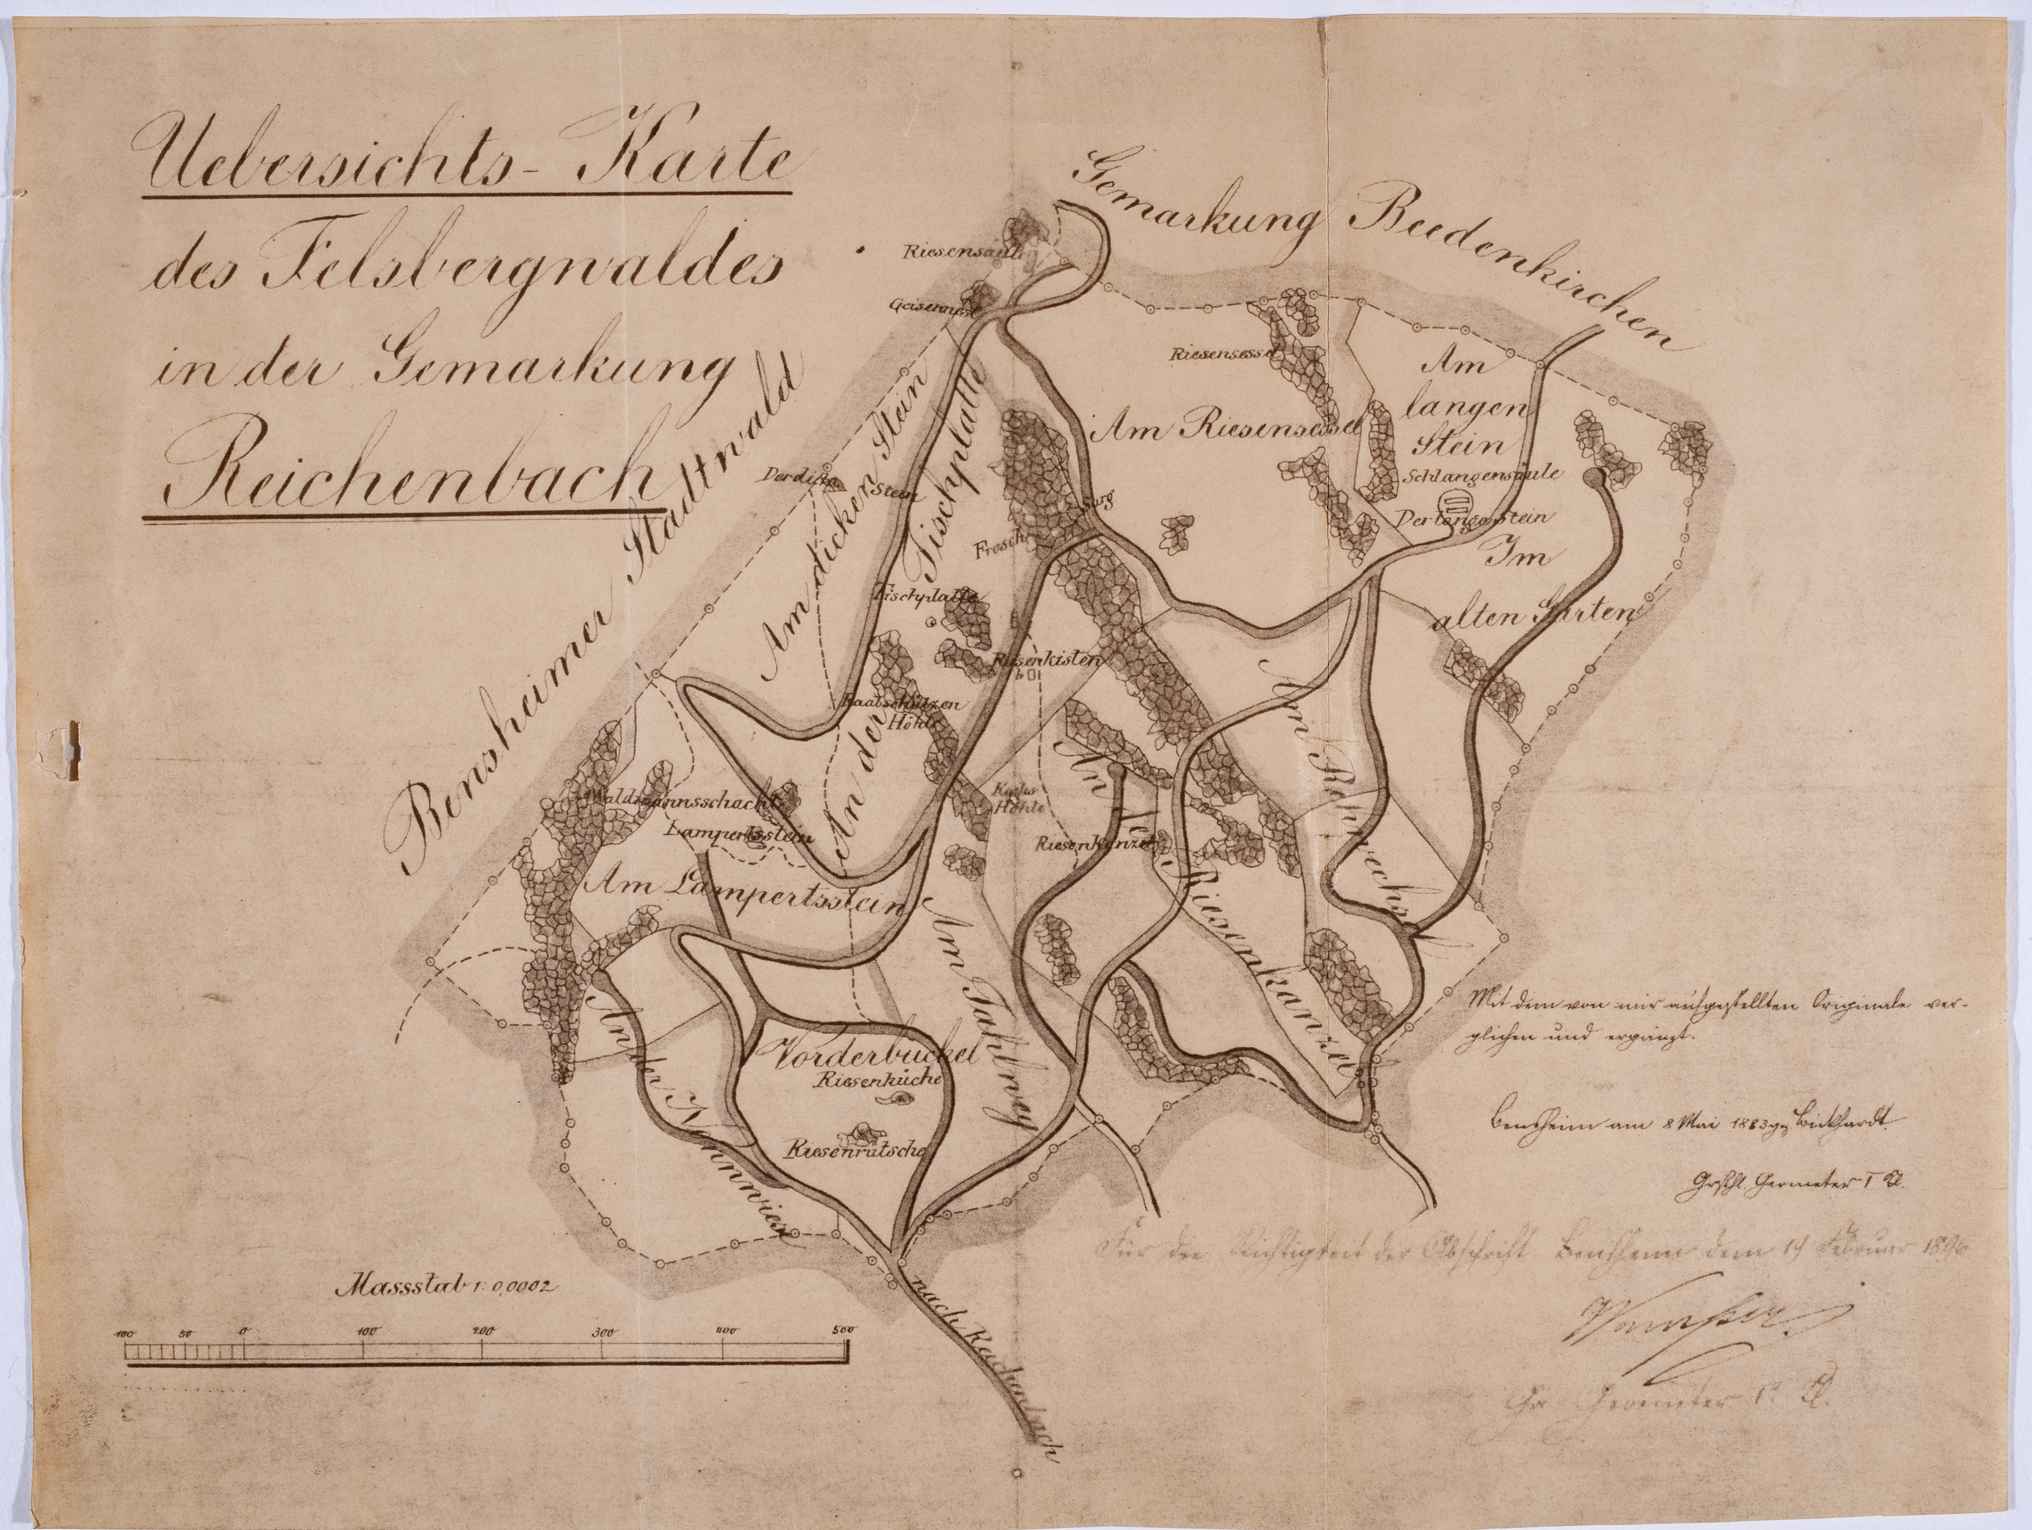 Uebersichts-Karte
des Felsbergwaldes
in der Gemarkung
Reichenbach
Gemarkung Beedenkirchen
Bensheimer Stadtwald
Riesensäule
Geisernest
Riesensessel
Am Riesensessel
Am
langen
Stein
Schlangensäule
Der lange Stein
Im
alten Garten
Der dicke Stein
Am dicken Stein
An der Tischplatte
Sarg
Frosch
Tischplatte
Riesenkisten
Höhle
Höhle
Waldmannsschacht
Lampertsstein
Am Lampertsstein
Riesenkanzel
An der Riesenkanzel
Am Tahlweg
Vorderbuckel
Riesenküche
Riesenrutsche
An der Nonnwiese
nach Reichenbach
Mit dem von mir aufgestellten Originale ver-
glichen und ergänzt.
Bensheim am 8 Mai 1883 gz
Grßhl. Geometer I Cl.
Für die Richtigkeit der Abschrift Bensheim dem 14 Februar 1896
Gr Geometer I. Cl.
Massstab 1:0,0002
100 50 0 100 200 300 400 500